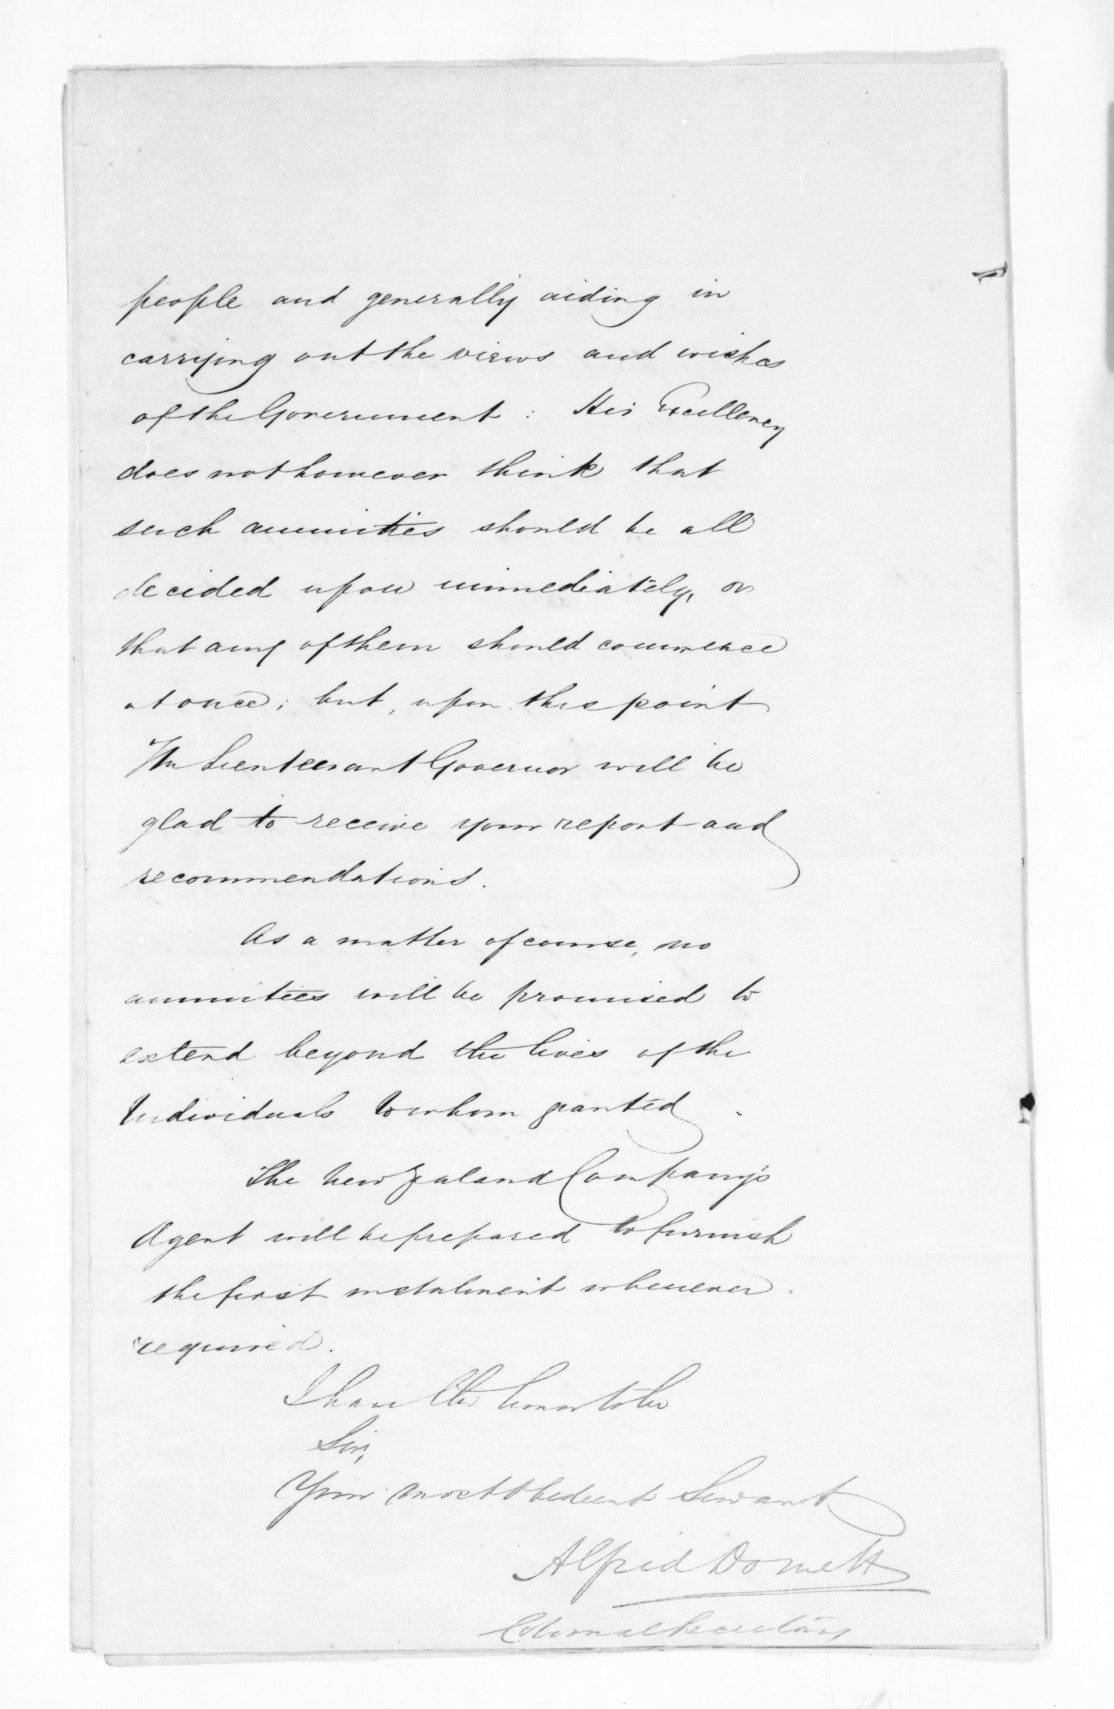 people and generally aiding in
carrying out the views and wishes
of the Government : His Excellency
does not however think that
such annuities should be all
decided upon immediately, or
that any of them should commence
at once; but, upon this point
The Lieutenant Governor will be
glad to receive your report and
recommendations.
As a matter of course, no
annuities will be promised to
extend beyond the lives of the
Individuals to whom granted.
The New Zealand Company's
Agent will be prepared to furnish
the first instalment whenever
required.
I have the honor to be
Sir,
Your most obedient Servant
Alfred Domett
Colonial Secretary